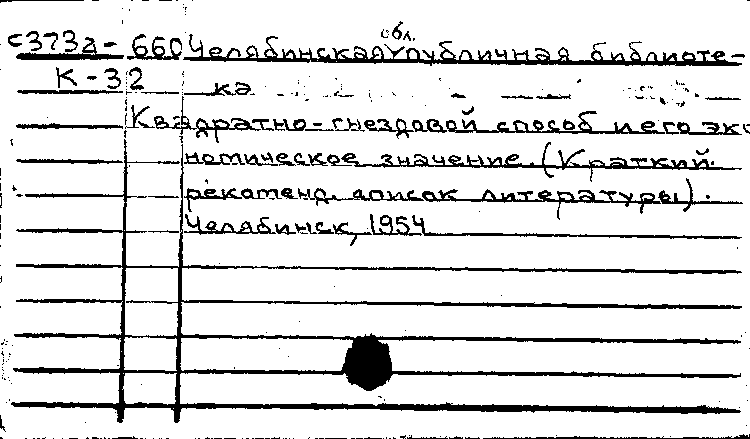 с373а- 660 Челябинская обл. публичная библиоте-
К-32 ка
Квадратно-гнездовой способ и его эко
номическое значение. (Краткий
рекоменд. список литературы).
Челябинск, 1954